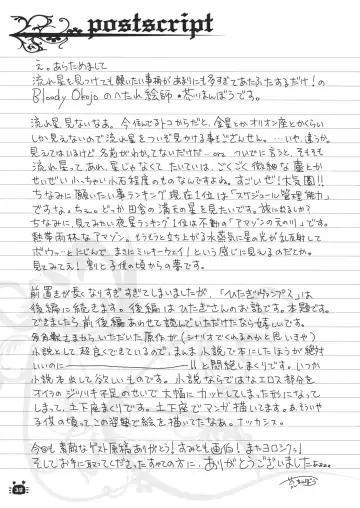 postscript
え。あらためまして
流れ星を見つけても願いたい事柄があまりにも多すぎてあたふたするだけ！の
Bloody Okojoのへたれ絵師 まんぼうです。
流れ星見ないなあ。今住んでるトコからだと、金星とかオリオン座とかくらい
しか見えないので流れ星をついぞ見かける事もございません。…いや、違うか。
見えてはいるけど名前がわかんてないだけだ…orz ついでに言うと、そもそも
流れ星ってあれ、星じゃなくてたいていは、ごくごく微細な塵とか
せいぜい小っちゃい小石程度のものなんですよね。すごいぜ！大気圏!!
ちなみに願いたい事ランキング現在1位は「スケジュール管理能力」
ですな。ちぇ。どっか田舎の満天の星を見たいです。旅に出るしか？
ちなみに、見てみたい夜星ランキング1位は不動の「アマゾンの天の川」です。
熱帯雨林なアマゾン。もうもうと立ち上がる水蒸気に星の光が乱反射して
ボウゥ…とにじんで まさにミルキーウェイ！という感じに見えるのだとか。
見てみてえ！割と子供の頃からの夢です。
前置きが長くなりすぎすぎてしまいましたが、「ひたぎヴァンプス」は
後編に続きます。後編はひたぎさんのお話です。本題です。
できましたら前後編あわせて読んでいただけたなら嬉しいです。
さまからいただいた原作が（シナリオでくれるのかと思いきや）
小説として超良くできているので、まんま小説で本にしたほうが絶対
いいのに!!と悶絶しまくりです。いつか
小説本出して欲しいものです。小説ならではなエロス部分を
オイラのジツリキ不足のせいで大幅にカットしてしまった形になって
しまって、土下座まくりです。土下座でマンガ描いてます。あ、そういや
子供の頃ってこの姿勢で絵を描いてたなあ。ナツカシス。
今回も素敵なゲスト原稿ありがとう！すみとも画伯！またヨロシク！
そしてお手に取ってくださったすべての方に、ありがとうございましたぁぁ。
38